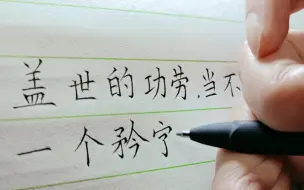 盖世的功劳,当不
一个矜字